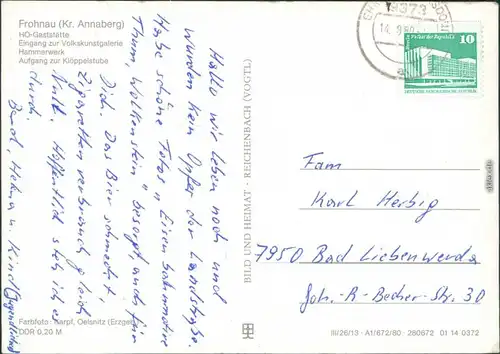 Frohnau (Kr. Annaberg)
HO-Gaststätte
Eingang zur Volkskunstgalerie
Hammerwerk
Aufgang zur Klöppelstube
Hallo wir leben noch und
wurden kein Opfer der Landstraße.
Habe schöne Fotos „Eisenbahnmotive
Thum, Wolkenstein" besorgt auch für
Dich. Das Bier schmeckt,
Zigarettenverbrauch gleich
Null. Hoffentlich steh ich es
durch.
Bernd, Helma u. Kind
Farbfoto: Karpf, Oelsnitz (Erzgeb.)
DDR 0,20 M
BILD UND HEIMAT · REICHENBACH (VOGTL)
9373
14.9.80
10
Fam
Karl Herbig
7950 Bad Liebenwerda
Joh.-R-Becher-Str. 30
III/26/13 · A1/672/80 · 280672 01 14 0372